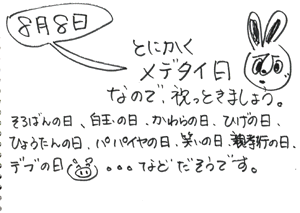 8月8日
とにかく
メデタイ日
なので、祝っときましょう。
そろばんの日、白玉の日、かわらの日、ひげの日、
ひょうたんの日、パパイヤの日、笑いの日、親孝行の日、
デブの日 ・・・などだそうです。